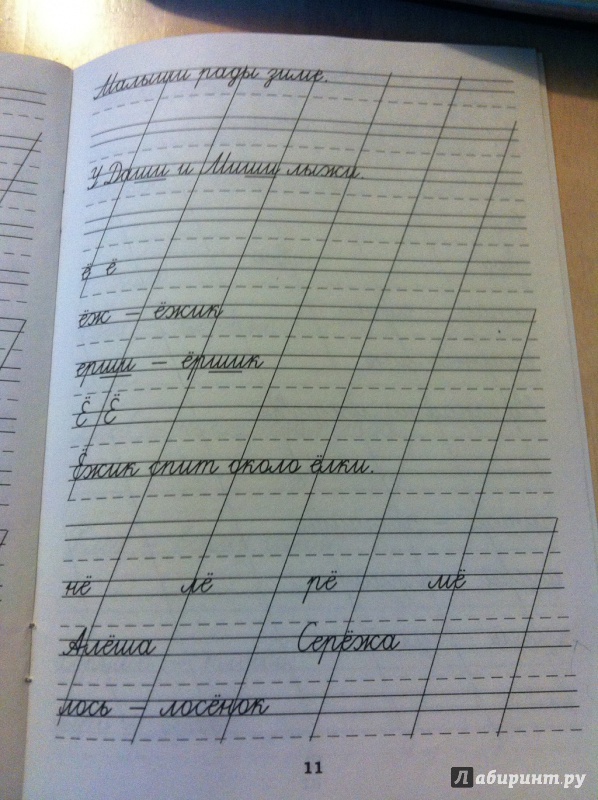 Малыши рады зиме.
У Даши и Миши лыжи.
ё ё
ёж – ёжик
ерши – ёршик
Ё Ё
Ёжик спит около ёлки.
нё лё рё мё
Алёша Серёжа
лось – лосёнок
11
Лабиринт.ру